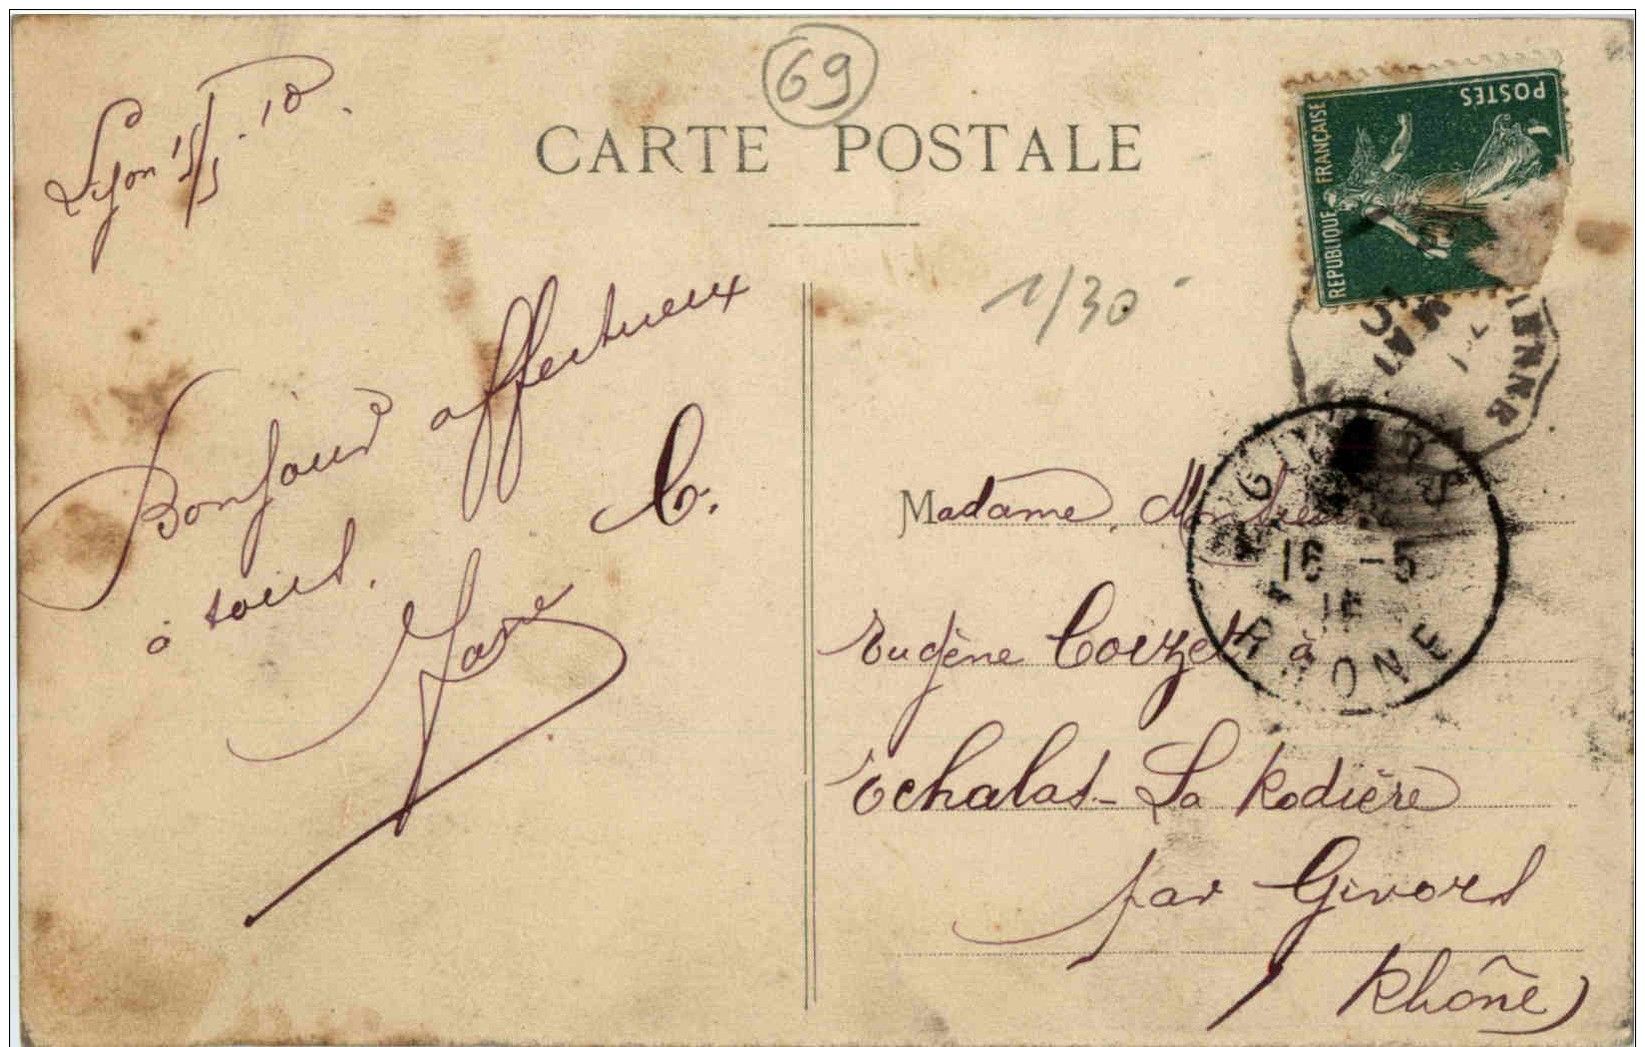 69
CARTE POSTALE
POSTES
REPUBLIQUE FRANÇAISE
Lyon 15/5.10.
1/30-
Bonjour affectueux
à tous.
C.
MAI
GIVORS
16 -5
RHONE
Madame,
Eugène Corzet à
Echalas - La Rodière
par Givors
Rhône)